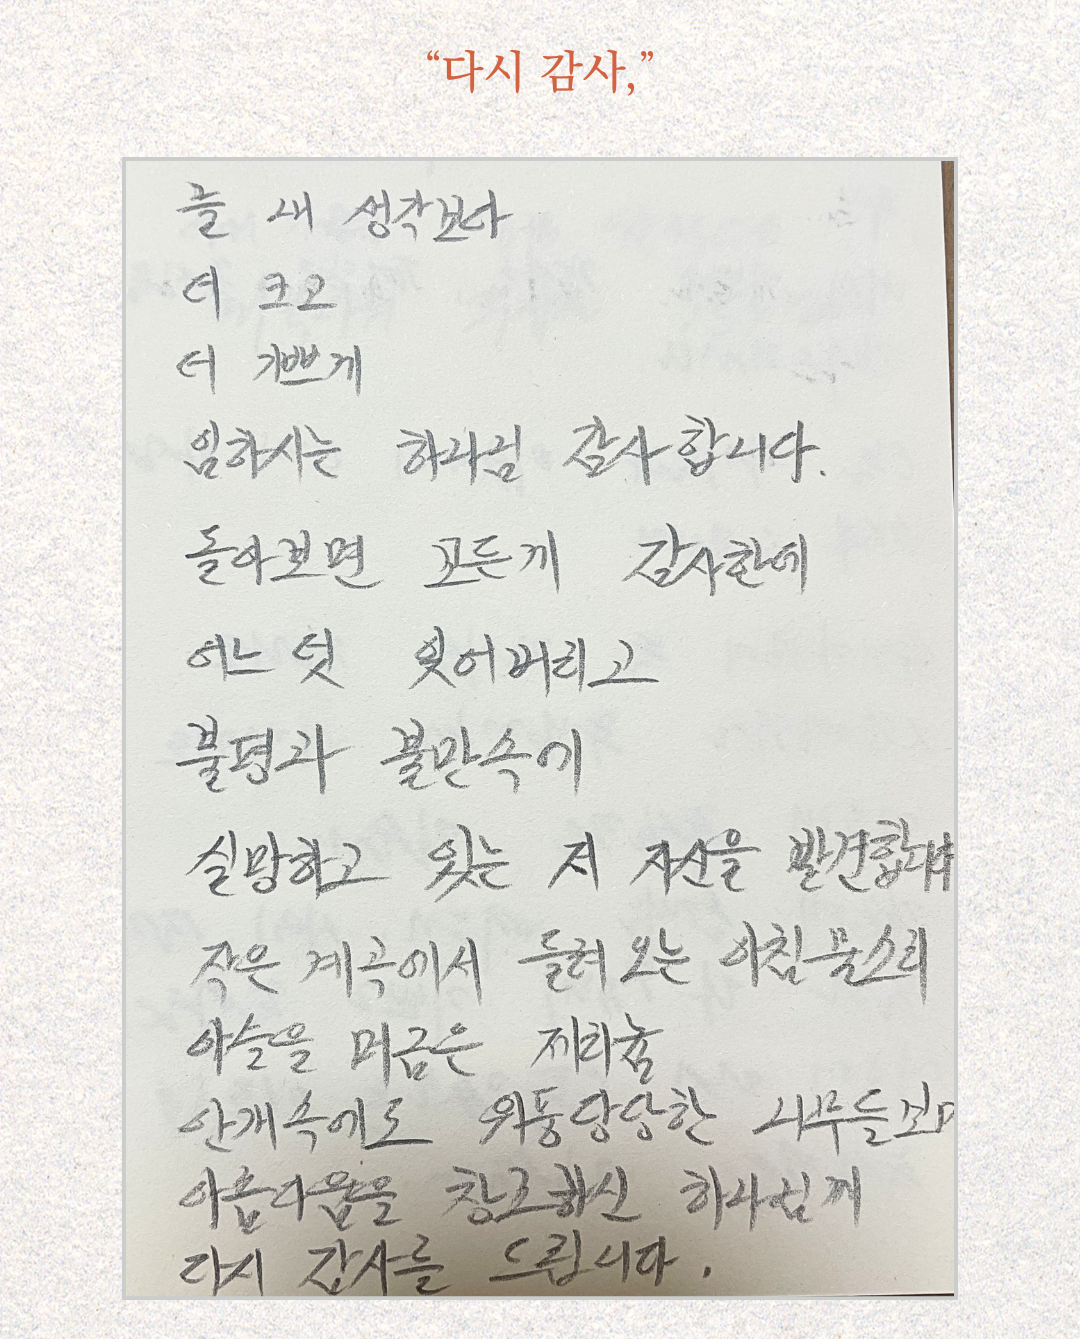 “다시 감사,”
늘 내 생각보다
더 크고
더 기쁘게
임하시는 하나님 감사합니다.
돌아보면 모든게 감사한데
어느 덧 잊어버리고
불평과 불만속에
실망하고 있는 저 자신을 발견합니다
작은 계곡에서 들려 오는 아침 물소리
이슬을 머금은 제라늄
안개속에도 위풍당당한 나무들보며
아름다움을 창조하신 하나님께
다시 감사를 드립니다.